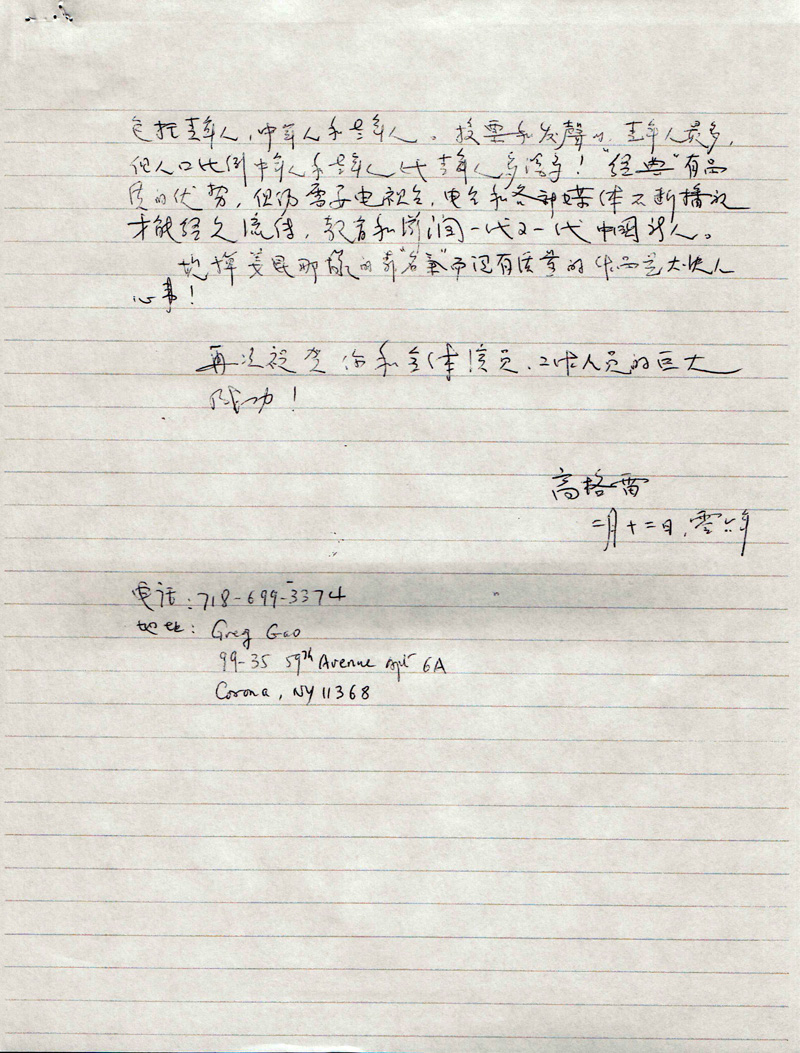 包括青年人,中年人和老年人。投票和发聲的,青年人最多,
但人口比例中年人和老年人比青年人多得多!"经典"有品
质的优势,但仍需要电视台,电台和各种媒体不断播放
才能经久流传,教育和滋润一代又一代中国人。
姜昆那样的靠"名氣"而没有质量的作品是大快人
心事!
再次祝贺你和全体演员、工作人员的巨大
成功!
高格雷
二月十二日,零六年
电话:718-699-3374
地址:Greg Gao
99-35 59th Avenue Apt 6A
Corona, NY 11368